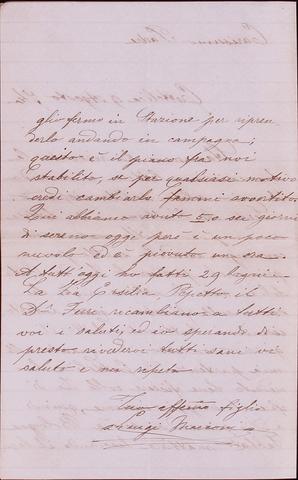 glio fermo in Stazione per ripren
derlo andando in campagna;
questo è il piano fra noi
stabilito, se per qualsiasi motivo
credi cambiarlo fammi avvertito.
Qui abbiamo avuto 5, o sei giorni
di sereno oggi però è un poco
nuvolo ed è piovuto un ora.
A tutt'oggi ho fatti 29 bagni.
La Zia Ersilia, Pepetto, il
D.r ricambiano a tutti
voi i saluti, ed io sperando di
presto rivedervi tutti sani vi
saluto e mi ripeto
Tuo affemo figlio
Luigi